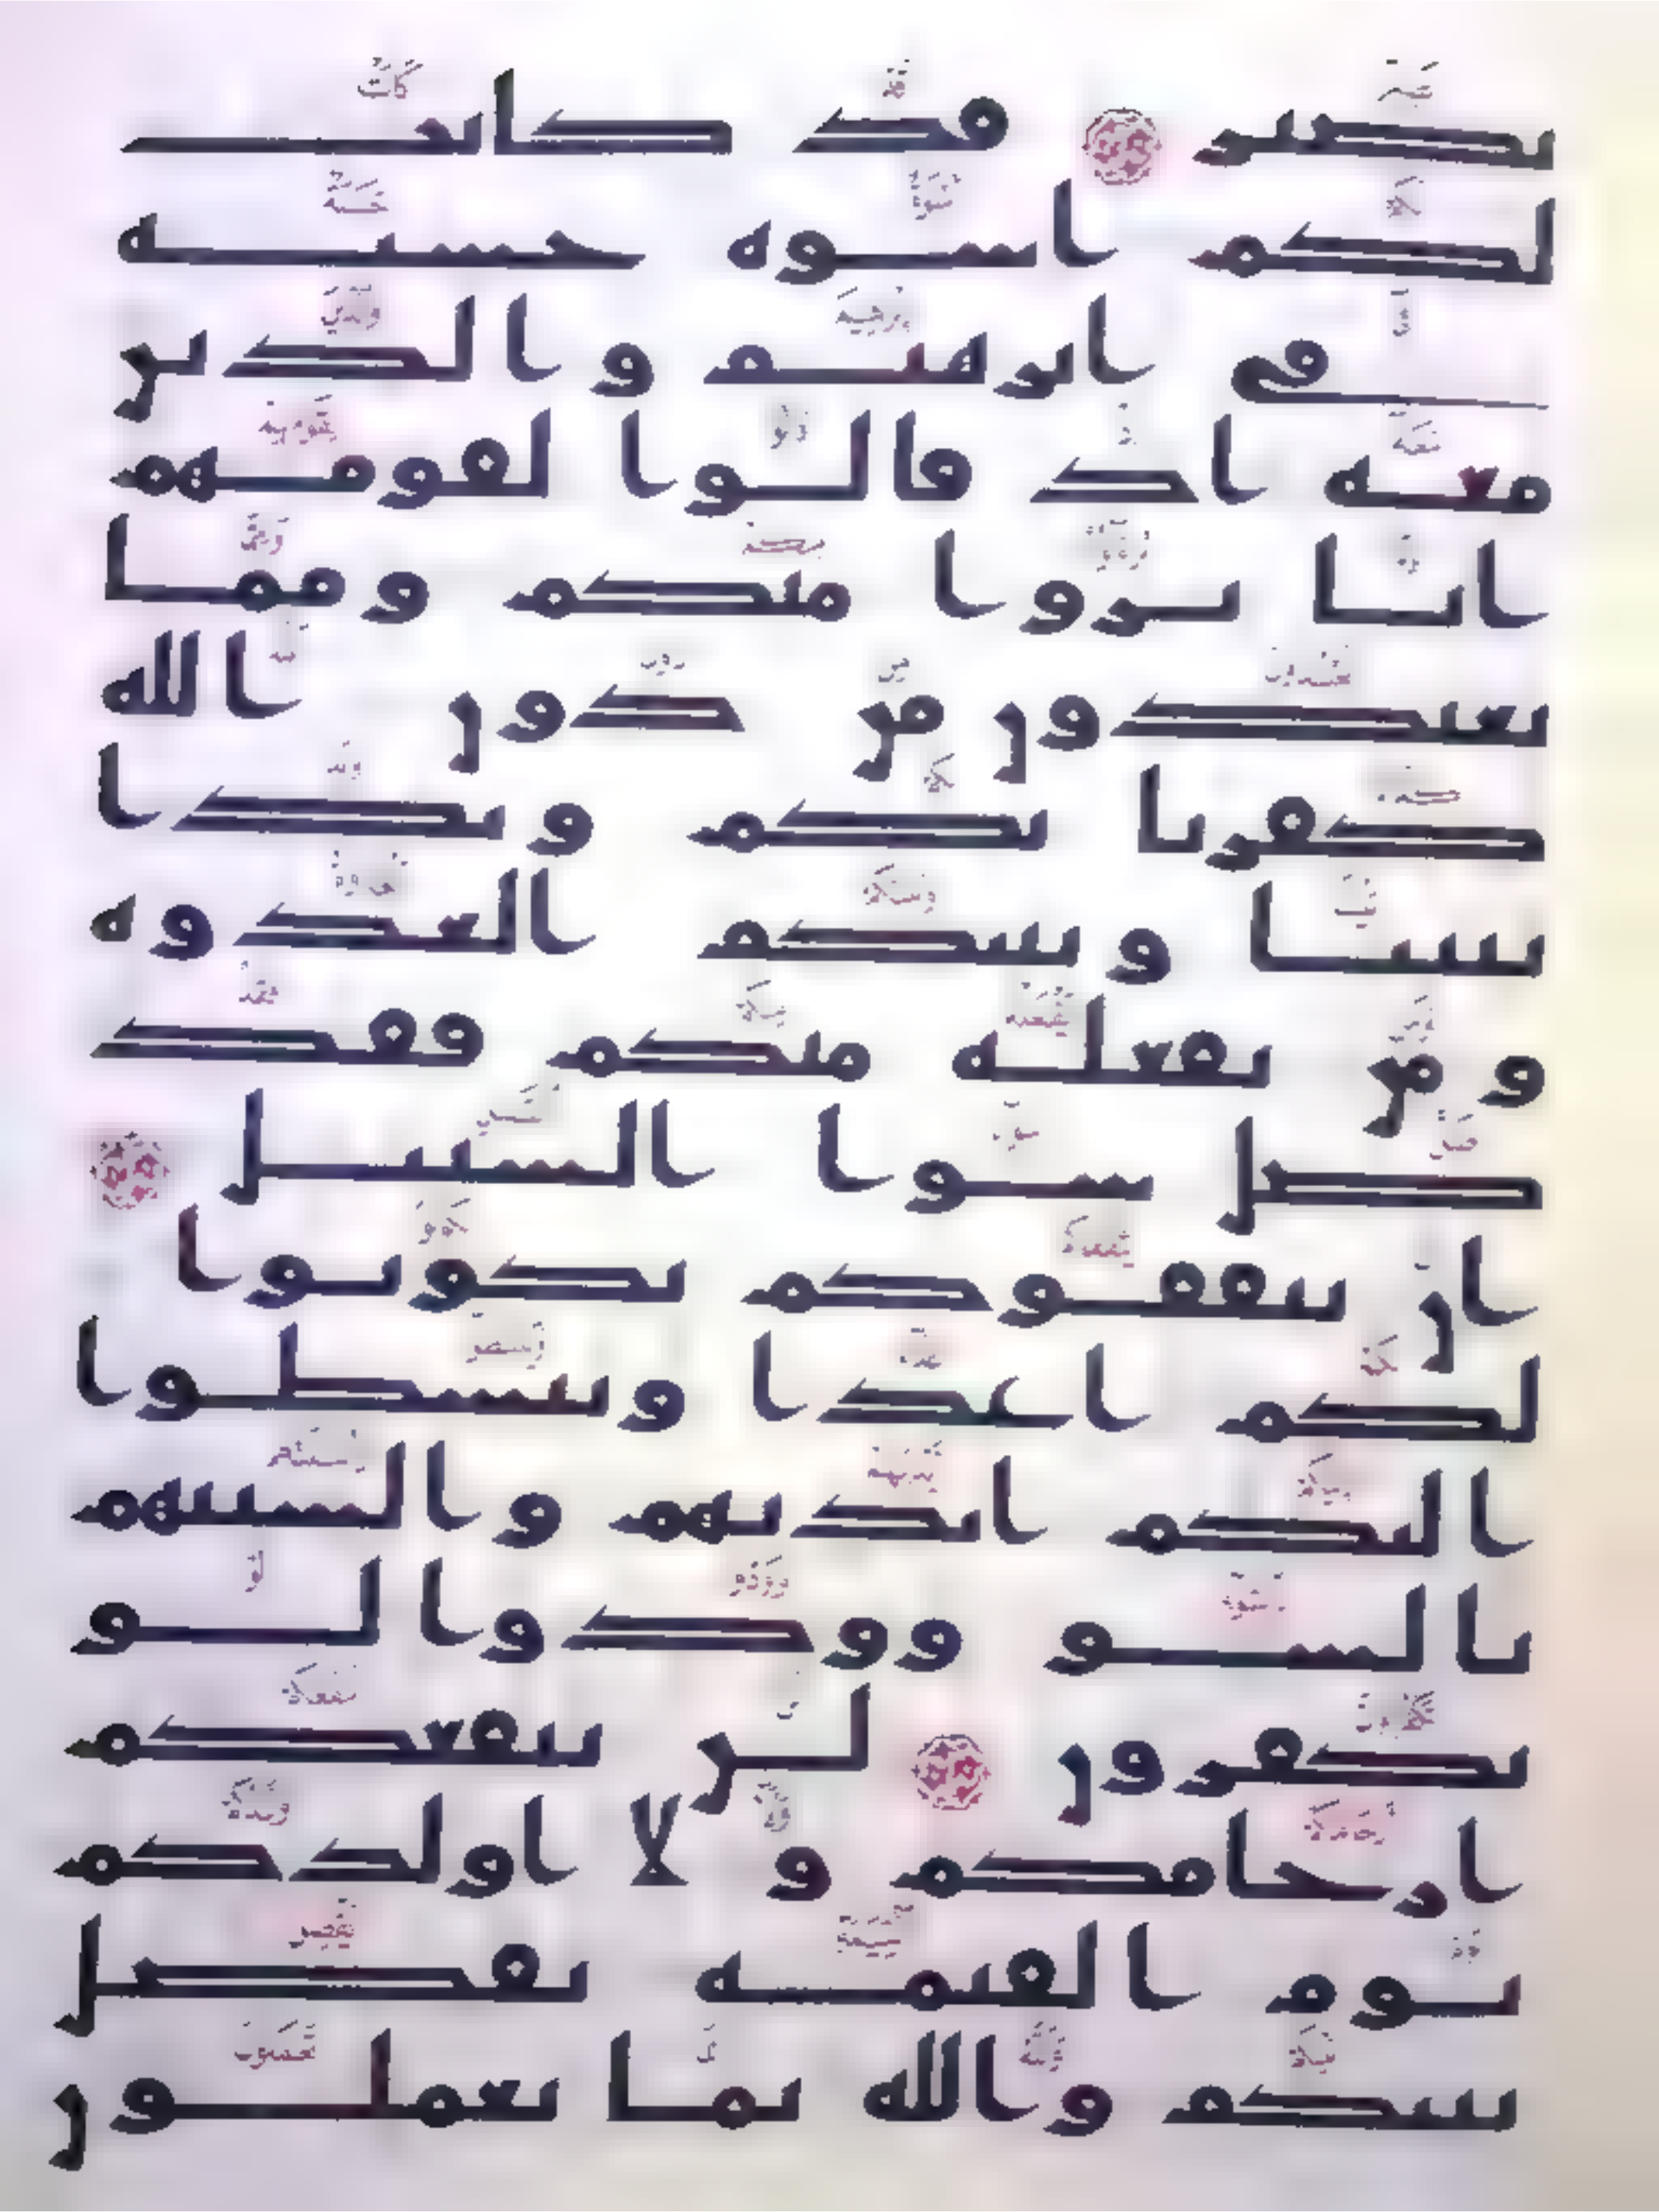 بصير قد كانت
لكم اسوه حسنه
في ابرهيم والذين
معه اذ قالوا لقومهم
انا بروا منكم ومما
تعبدون من دون الله
كفرنا بكم وبدا
بيننا وبينكم العدوه
ومن يفعله منكم فقد
ضل سوا السبيل
ان يثقفوكم يكونوا
لكم اعدا ويبسطوا
اليكم ايديهم والسنتهم
بالسو وودوا لو
تكفرون لن تنفعكم
ارحامكم ولا اولدكم
يوم القيمه يفصل
بينكم والله بما تعملون